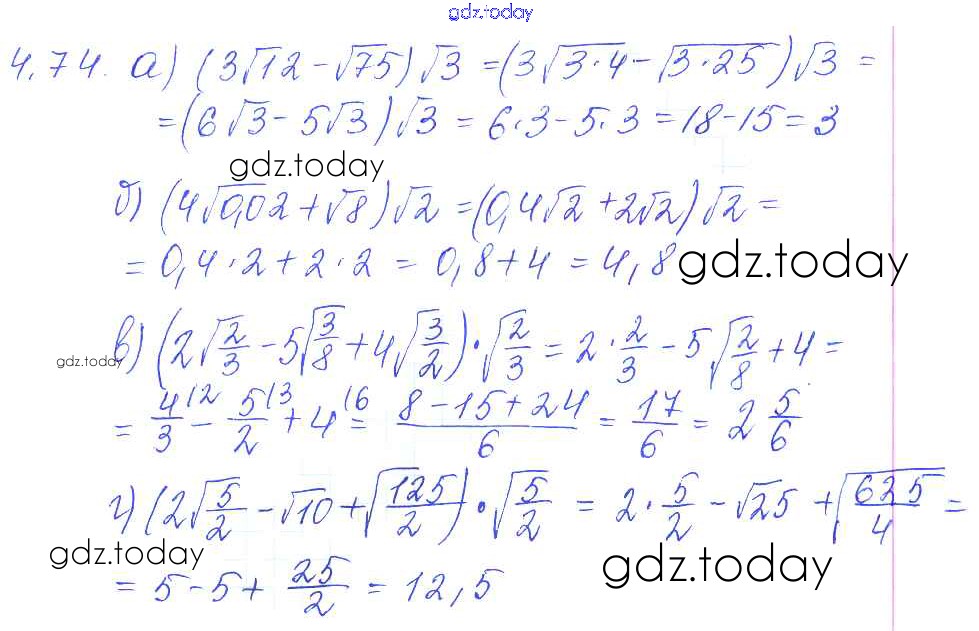 gdz.today
4.74. а) (3√12 - √75)√3 = (3√3·4 - √3·25)√3 =
= (6√3 - 5√3)√3 = 6·3 - 5·3 = 18 - 15 = 3
gdz.today
б) (4√0,02 + √8)√2 = (0,4√2 + 2√2)√2 =
= 0,4·2 + 2·2 = 0,8 + 4 = 4,8
gdz.today
в) (2√2/3 - 5√3/8 + 4√3/2)·√2/3 = 2·2/3 - 5√2/8 + 4 =
gdz.today
= 4/3 (2 - 5/2 (3 + 4 (6 = 8-15+24/6 = 17/6 = 2 5/6
г) (2√5/2 - √10 + √125/2)·√5/2 = 2·5/2 - √25 + √625/4 =
gdz.today
gdz.today
= 5 - 5 + 25/2 = 12,5